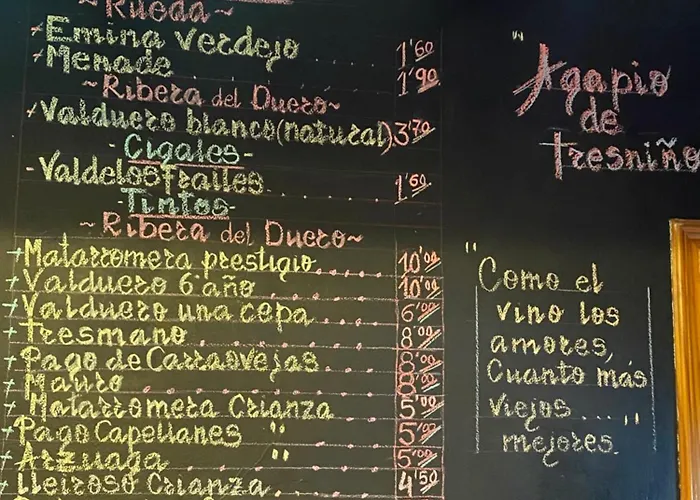 ~Rueda~
Emina Verdejo 1'60
Menade 1'90
~Ribera del Duero~
Valduero blanco (natural) 3'70
-Cigales-
-Valdelosfrailes 1'60
-Tintos-
~Ribera del Duero~
Matarromera prestigio 10'00
Valduero 6 año 10'00
Valduero una cepa 6'00
Tresmano 8'00
Pago de Carraovejas 8'00
Mauro 8'00
Matarromera Crianza 5'00
Pago Capellanes " 5'00
Arzuaga " 5'00
Lleiroso Crianza 4'50
"Agapio
de
Tresniño
"Como el
vino los
amores,
Cuanto más
viejos ....,,
mejores.